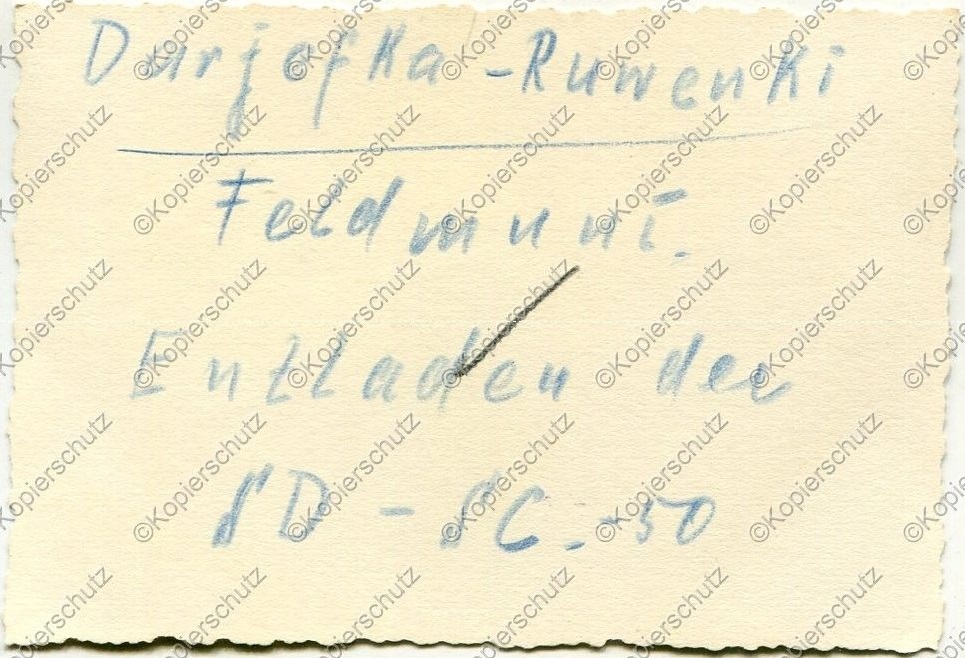 Durjefka - Ruwenki
Feldmuni.
Entladen der
SD - SC - 50
©Kopierschutz